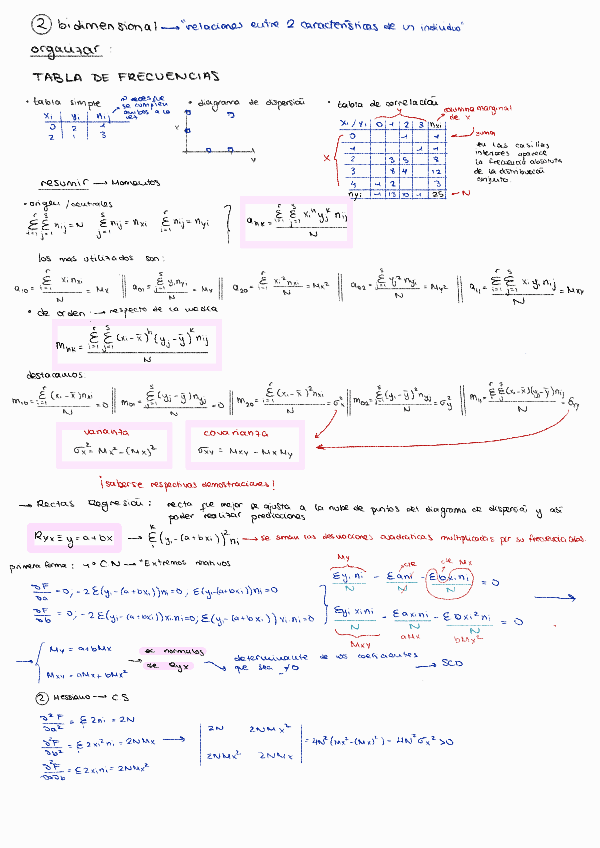 ② bidimensional → "relaciones entre 2 características de un individuo"
organizar:
TABLA DE FRECUENCIAS
• tabla simple
xi yi ni
0 2 1
2 1 3
nº veces que se cumplen ambos a la vez
• diagrama de dispersión
x
y
• tabla de correlación
columna marginal de x
y
xi/yi 0 1 2 3 nxi
0 1 1
1 1 1
2 3 5 8
3 8 4 12
4 1 2 3
nyj 1 13 0 1 25
x
suma
N
en las casillas interiores aparece la frecuencia absoluta de la distribución conjunta
resumir → Momentos
• origen/centrales
Σ Σ nij = N Σ nij = nxi Σ nij = nyj
ahk = Σ Σ xi^h yj^k nij / N
los mas utilizados son:
a10 = Σ xi nxi / N = Mx || a01 = Σ yj nyj / N = My || a20 = Σ xi² nxi / N = Mx² || a02 = Σ yj² nyj / N = My² || a11 = Σ Σ xi yj nij / N = Mxy
• de orden: → respecto de la media
mhk = Σ Σ (xi - x̄)^h (yj - ȳ)^k nij / N
destacamos
m10 = Σ (xi - x̄) nxi / N = 0 || m01 = Σ (yj - ȳ) nyj / N = 0 || m20 = Σ (xi - x̄)² nxi / N = σx² || m02 = Σ (yj - ȳ)² nyj / N = σy² || m11 = Σ Σ (xi - x̄)(yj - ȳ) nij / N = σxy
varianza
σx² = Mx² - (Mx)²
covarianza
σxy = Mxy - Mx My
¡saberse respectivas demostraciones!
→ Rectas Regresión: recta que mejor se ajusta a la nube de puntos del diagrama de dispersión y así
poder realizar predicciones
Ryx ≡ y = a + bx → Σ (yi - (a + bxi))² ni → se suman las desviaciones cuadráticas multiplicadas por su frecuencia abs.
primera forma: 1º CN → "Extremos relativos
∂F/∂a = 0; -2 Σ (yi - (a + bxi)) ni = 0; Σ (yi - (a + bxi)) ni = 0
∂F/∂b = 0; -2 Σ (yi - (a + bxi)) xi ni = 0; Σ (yi - (a + bxi)) xi ni = 0
My cte cte Mx
Σ yi ni / N - Σ a ni / N - Σ b xi ni / N = 0 →
Σ yi xi ni / N - Σ a xi ni / N - Σ b xi² ni / N = 0
Mxy aMx bMx²
→ { My = a + bMx
Mxy = aMx + bMx²
→ ec normales de Ryx → determinante de los coeficientes que sea ≠ 0 → SCD
② Hessiano → CS
∂²F/∂a² = Σ 2ni = 2N
∂²F/∂b² = Σ 2xi² ni = 2NMx
∂²F/∂a∂b = Σ 2xi ni = 2NMx²
→ | 2N 2NMx² |
| 2NMx² 2NMx | = 4N² (Mx² - (Mx)²) = 4N² σx² > 0